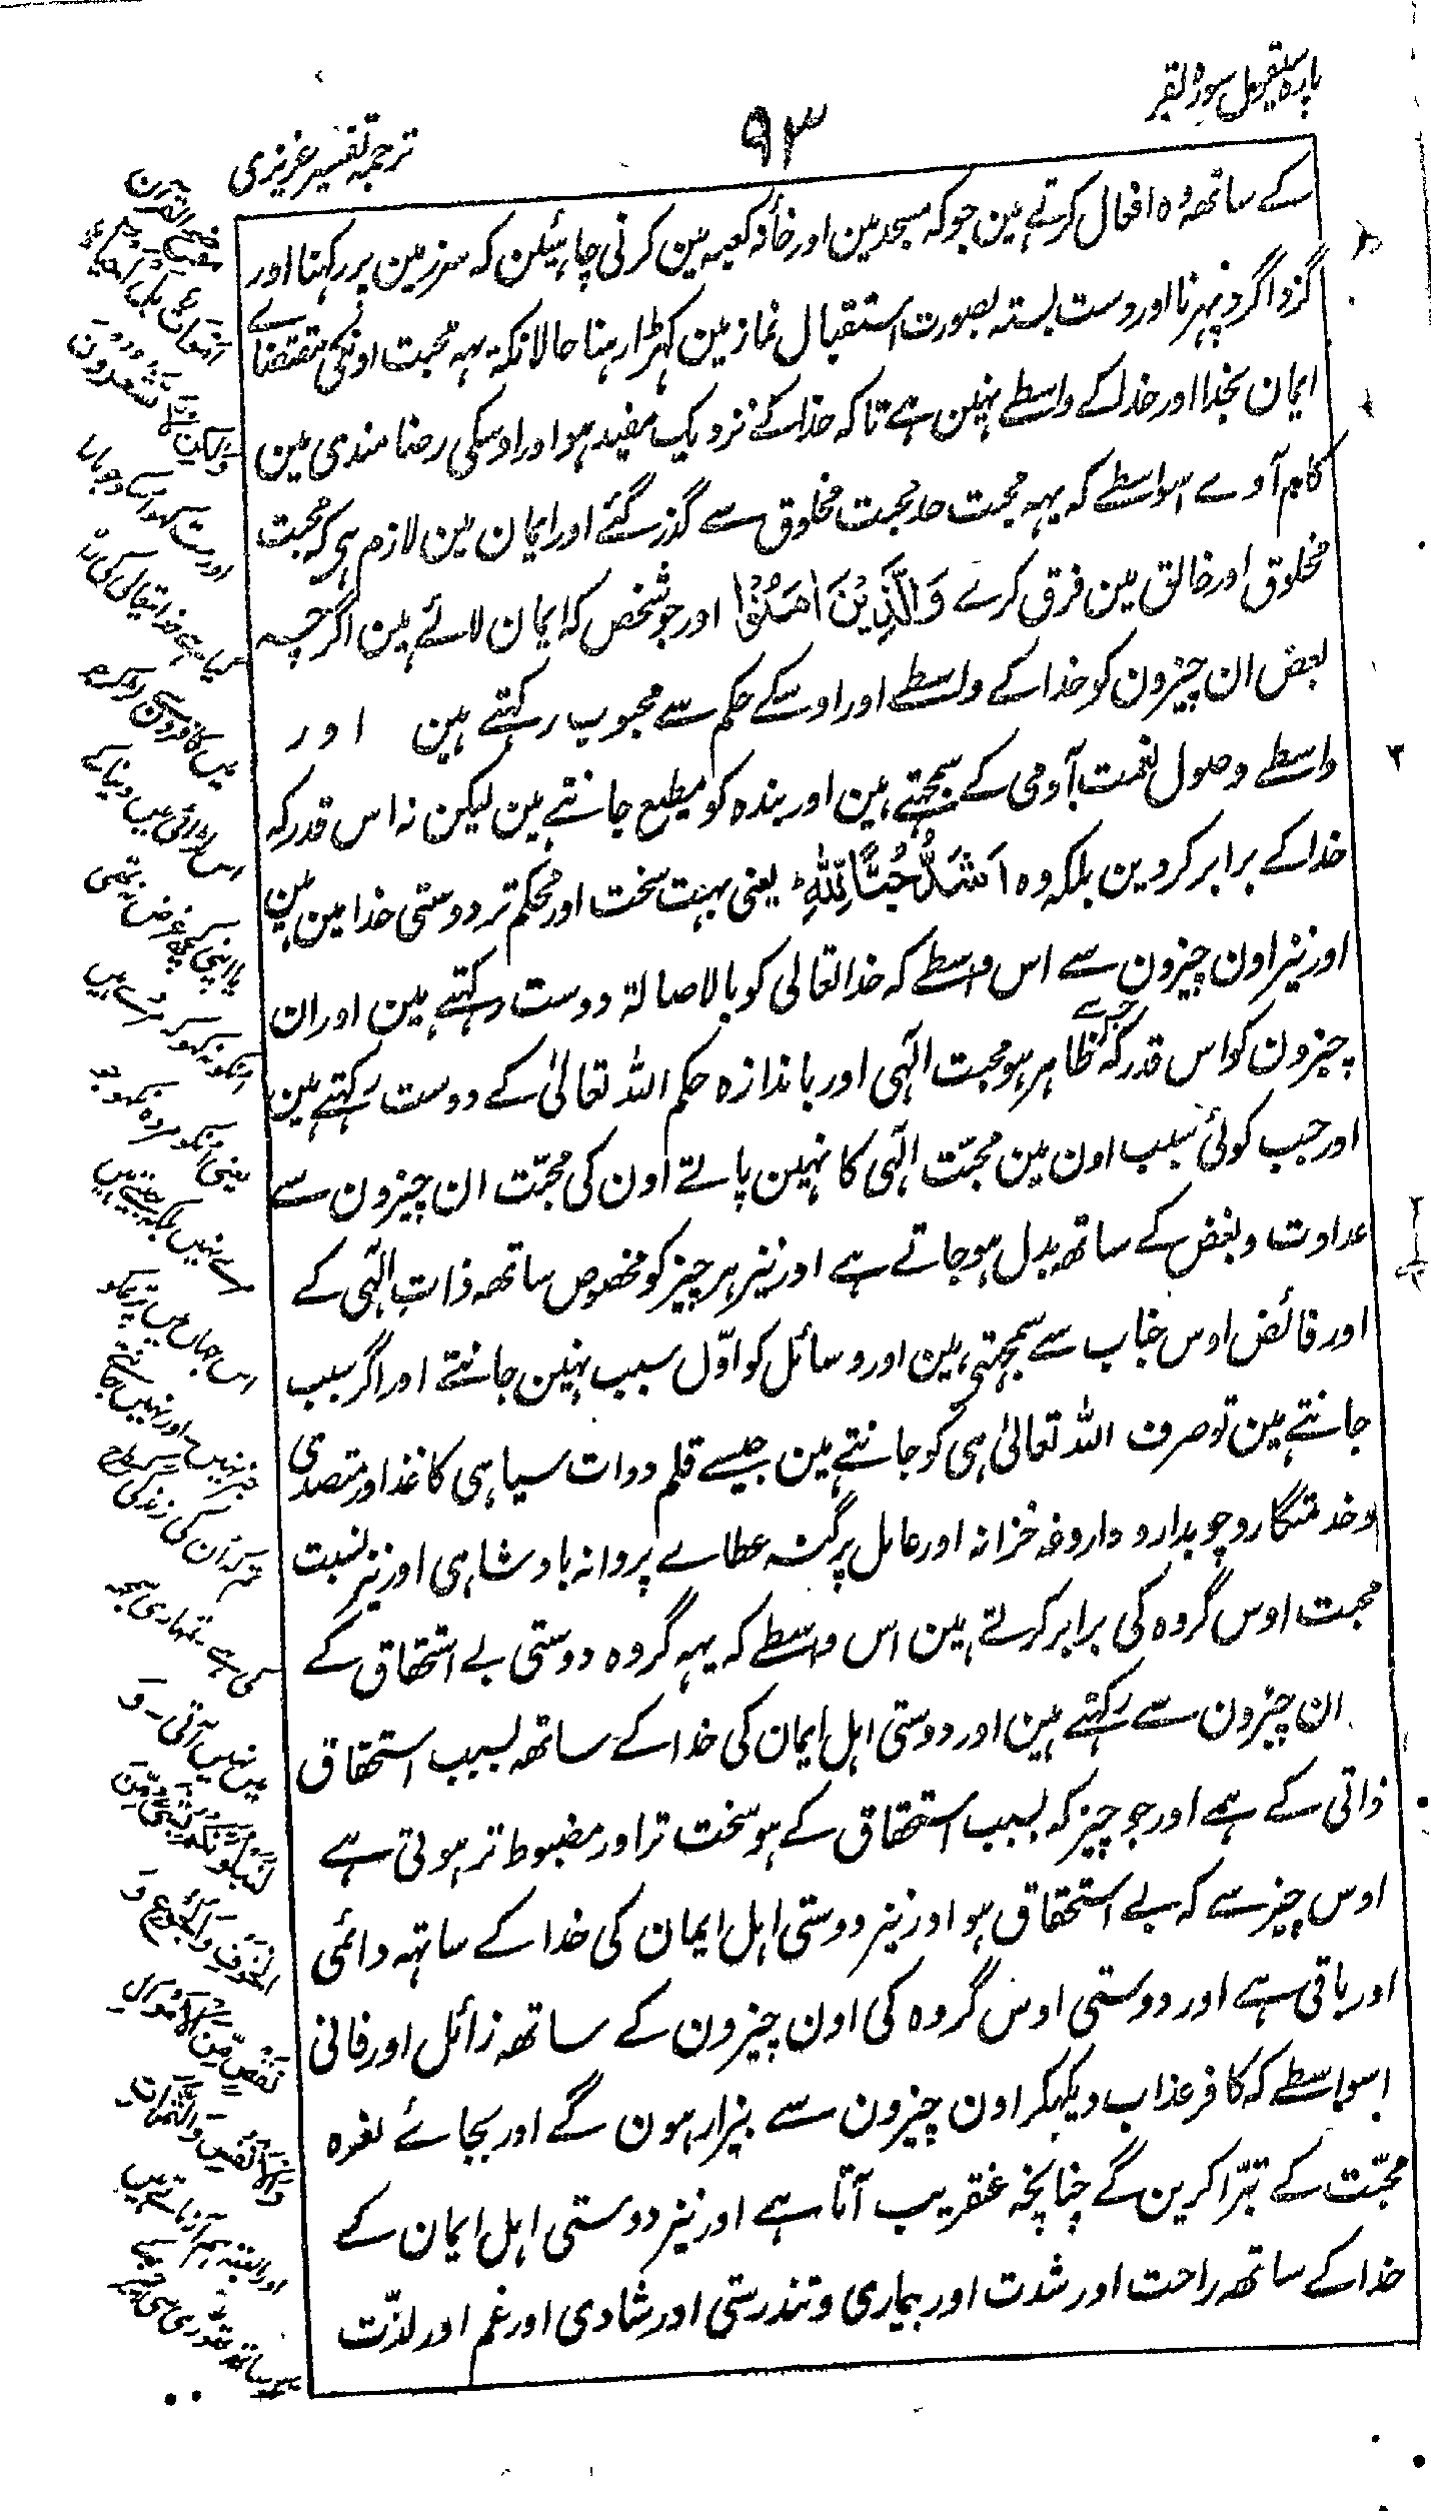 پارہ سیقول سورہ بقر
۹۳
ترجمہ تفسیر عزیزی
کے ساتھ وہ افعال کرتے ہین جو کہ مسجد مین اور خانہ کعبہ مین کرنی چاہئین کہ سر زمین پر رکہنا اور
گرداگرد پہرنا اور دست بستہ بصورت استقبال نماز مین کہڑا رہنا حالانکہ یہہ محبت اونکی مقتضائے
ایمان بخدا اور خدا کے واسطے نہین ہے تاکہ خدا کے نزدیک مفید ہو اور اوسکی رضامندی مین
کام آوے اسواسطے کہ یہہ محبت حد محبت مخلوق سے گذر گئے اور ایمان مین لازم ہی کہ محبت
مخلوق اور خالق مین فرق کرے وَالَّذِيْنَ اٰمَنُوْٓا اور جو شخص کہ ایمان لائے ہین اگرچہ
بعض ان چیزون کو خدا کے واسطے اور اوسکے حکم سے محبوب رکہتے ہین اور
واسطے وصول نعمت آدمی کے سمجہتے ہین اور بندہ کو مطیع جانتے ہین لیکن نہ اس قدر کہ
خدا کے برابر کردین بلکہ وہ اَشَدُّ حُبًّا لِّلّٰهِ یعنی بہت سخت اور محکم تر دوستی خدا مین ہین
اور نیز اون چیزون سے اس واسطے کہ خدا تعالی کو بالاصالۃ دوست رکہتے ہین اور ان
چیزون کو اس قدر کہ جس سے ظاہر ہو محبت الٰہی اور باندازہ حکم اللہ تعالیٰ کے دوست رکہتے ہین
اور جب کوئی سبب اون مین محبّت الٰہی کا نہین پاتے اون کی محبّت ان چیزون سے
عداوت و بغض کے ساتھ بدل ہوجاتے ہے اور نیز ہر چیز کو مخصوص ساتھ ذات الٰہی کے
اور فائض اوس جناب سے سمجہتی ہین اور وسائل کو اوّل سبب نہین جانتے اور اگر سبب
جانتے ہین تو صرف اللہ تعالیٰ ہی کو جانتے ہین جیسے قلم دوات سیاہی کاغذ اور متصدی
و خدمتگار و چوبدار و داروغہ خزانہ اور عامل پرگنہ عطاے پروانہ بادشاہی اور نیز نسبت
محبت اوس گروہ کی برابر کرتے ہین اس واسطے کہ یہہ گروہ دوستی بے استحقاق کے
ان چیزون سے رکہتے ہین اور دوستی اہل ایمان کی خدا کے ساتھ بسبب استحقاق
ذاتی کے ہے اور جو چیز کہ بسبب استحقاق کے ہو سخت تر اور مضبوط تر ہوتی ہے
اوس چیز سے کہ بے استحقاق ہو اور نیز دوستی اہل ایمان کی خدا کے ساتہہ دائمی
اور باقی ہے اور دوستی اوس گروہ کی اون چیزون کے ساتھ زائل اور فانی
اسواسطے کہ کافر عذاب دیکہکر اون چیزون سے بیزار ہون گے اور بجائے نعرہ
محبّت کے تبرّا کرین گے چنانچہ عنقریب آتا ہے اور نیز دوستی اہل ایمان کے
خدا کے ساتھ راحت اور شدت اور بیماری و تندرستی اور شادی اور غم اور لذّت
موضح القرآن
اَمْوَاتٌ بَلْ اَحْيَآءٌ
وَّلٰكِنْ لَّا تَشْعُرُوْنَ
خدا تعالی کی
میں کافروں سے
اس لڑائی میں دنیا کے
یا اپنی کچھ غرض نہ تھی
انکو نہ کہو کہ مرے ہیں
یعنی انکو مردہ نکہو
نہیں بلکہ جیتے ہیں
اس جہاں میں
خبر نہیں اور نہیں جانتے
اُن کی زندگی
ہے تمہاری سمجھ
میں نہیں آتی۔ وَ
لَنَبْلُوَنَّكُمْ بِشَيْءٍ مِّنَ
الْخَوْفِ وَالْجُوْعِ وَ
نَقْصٍ مِّنَ الْاَمْوَالِ
وَالْاَنْفُسِ وَالثَّمَرٰتِ
اور البتہ ہم آزماتے ہیں
ساتھ تھوڑی سی چیز